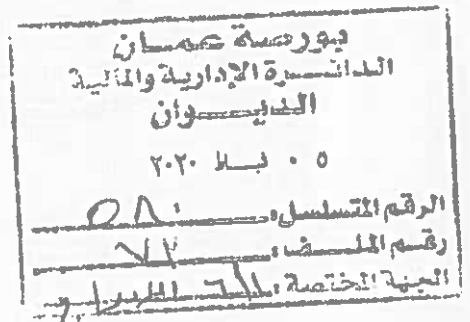 بورصة عمان
الدائرة الإدارية والمالية
الديوان
٠٥ شباط ٢٠٢٠
الرقم المتسلسل:
رقم الملف:
الجهة المختصة: